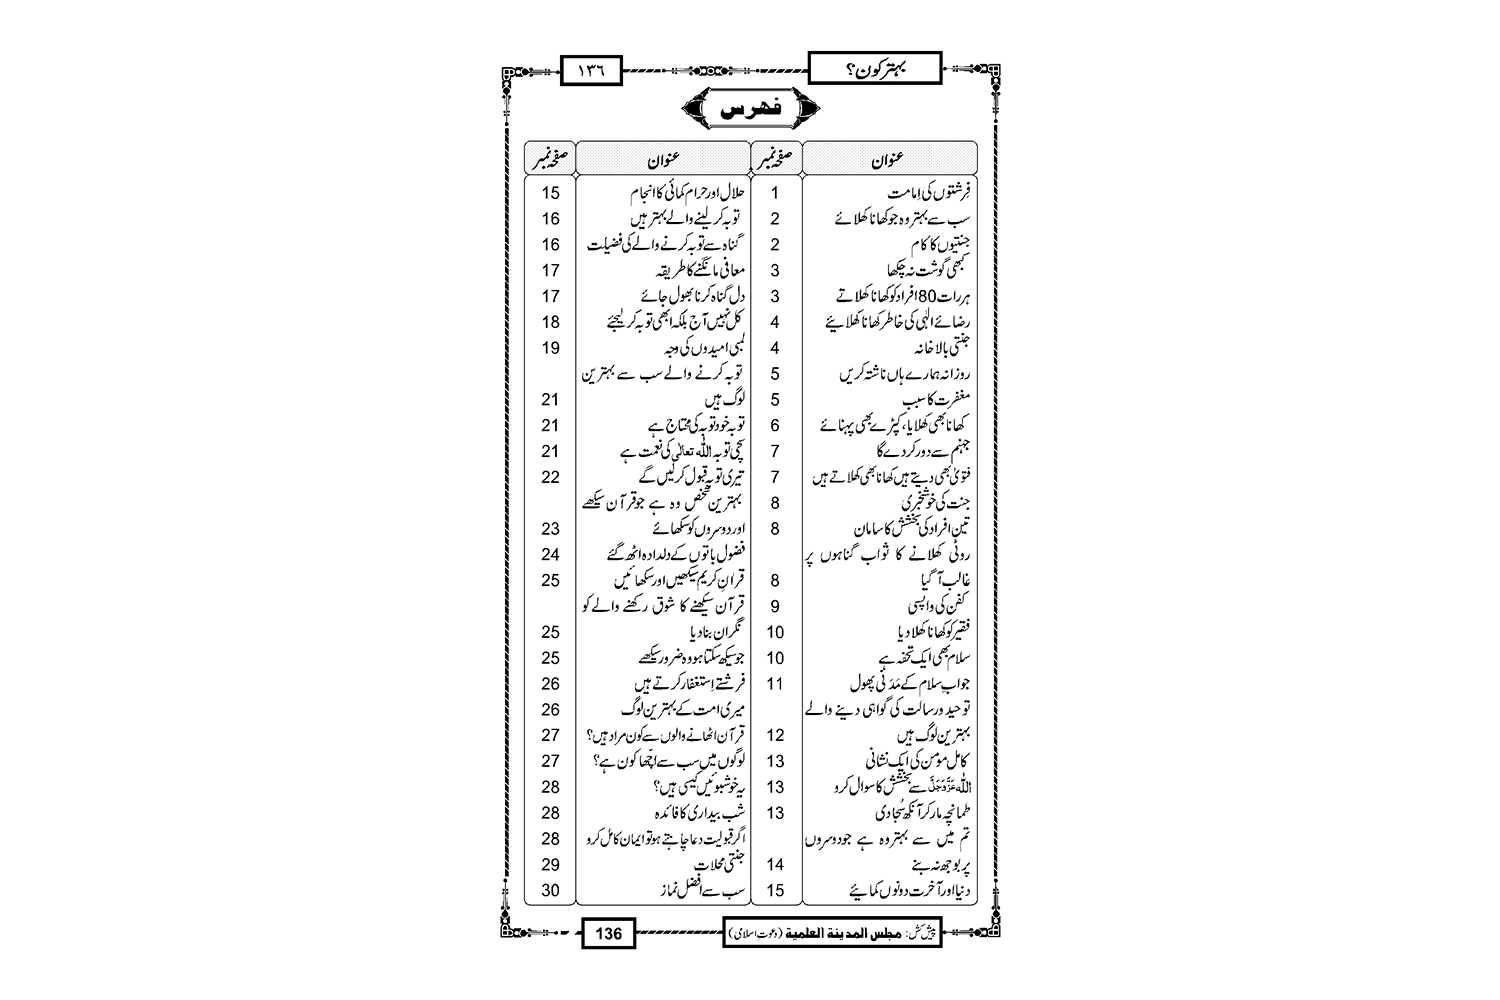 بہتر کون؟
١٣٦
فہرس
عنوان صفحہ نمبر
فرشتوں کی اِمامت 1
سب سے بہتر وہ جو کھانا کھلائے 2
جنتیوں کا کام 2
کبھی گوشت نہ چکھا 3
ہر رات 80 افراد کو کھانا کھلاتے 3
رضائے الٰہی کی خاطر کھانا کھلایئے 4
جنتی بالا خانہ 4
روزانہ ہمارے ہاں ناشتہ کریں 5
مغفرت کا سبب 5
کھانا بھی کھلایا، کپڑے بھی پہنائے 6
جہنم سے دور کر دے گا 7
فتویٰ بھی دیتے ہیں کھانا بھی کھلاتے ہیں 7
جنت کی خوشخبری 8
تین افراد کی بخشش کا سامان 8
روٹی کھلانے کا ثواب گناہوں پر
غالب آ گیا 8
کفن کی واپسی 9
فقیر کو کھانا کھلا دیا 10
سلام بھی ایک تحفہ ہے 10
جوابِ سلام کے مَدَنی پھول 11
توحید و رسالت کی گواہی دینے والے
بہترین لوگ ہیں 12
کامل مؤمن کی ایک نشانی 13
اللہ عَزَّوَجَلَّ سے بخشش کا سوال کرو 13
طمانچہ مار کر آنکھ سُجا دی 13
تم میں سے بہتر وہ ہے جو دوسروں
پر بوجھ نہ بنے 14
دنیا اور آخرت دونوں کمایئے 15
عنوان صفحہ نمبر
حلال اور حرام کمائی کا انجام 15
توبہ کر لینے والے بہتر ہیں 16
گناہ سے توبہ کرنے والے کی فضیلت 16
معافی مانگنے کا طریقہ 17
دل گناہ کرنا بھول جائے 17
کل نہیں آج بلکہ ابھی توبہ کر لیجئے 18
لمبی امیدوں کی وجہ 19
توبہ کرنے والے سب سے بہترین
لوگ ہیں 21
توبہ خود توبہ کی محتاج ہے 21
سچی توبہ اللہ تعالٰی کی نعمت ہے 21
تیری توبہ قبول کر لیں گے 22
بہترین شخص وہ ہے جو قرآن سیکھے
اور دوسروں کو سکھائے 23
فضول باتوں کے دلدادہ اٹھ گئے 24
قرانِ کریم سیکھیں اور سکھائیں 25
قرآن سیکھنے کا شوق رکھنے والے کو
نگران بنا دیا 25
جو سیکھ سکتا ہو وہ ضرور سیکھے 25
فرشتے اِستغفار کرتے ہیں 26
میری امت کے بہترین لوگ 26
قرآن اٹھانے والوں سے کون مراد ہیں؟ 27
لوگوں میں سب سے اچّھا کون ہے؟ 27
یہ خوشبوئیں کیسی ہیں؟ 28
شب بیداری کا فائدہ 28
اگر قبولیت دعا چاہتے ہو تو ایمان کامل کرو 28
جنتی محلات 29
سب سے افضل نماز 30
پیش کش: مجلس المدینة العلمیة (دعوتِ اسلامی)
136